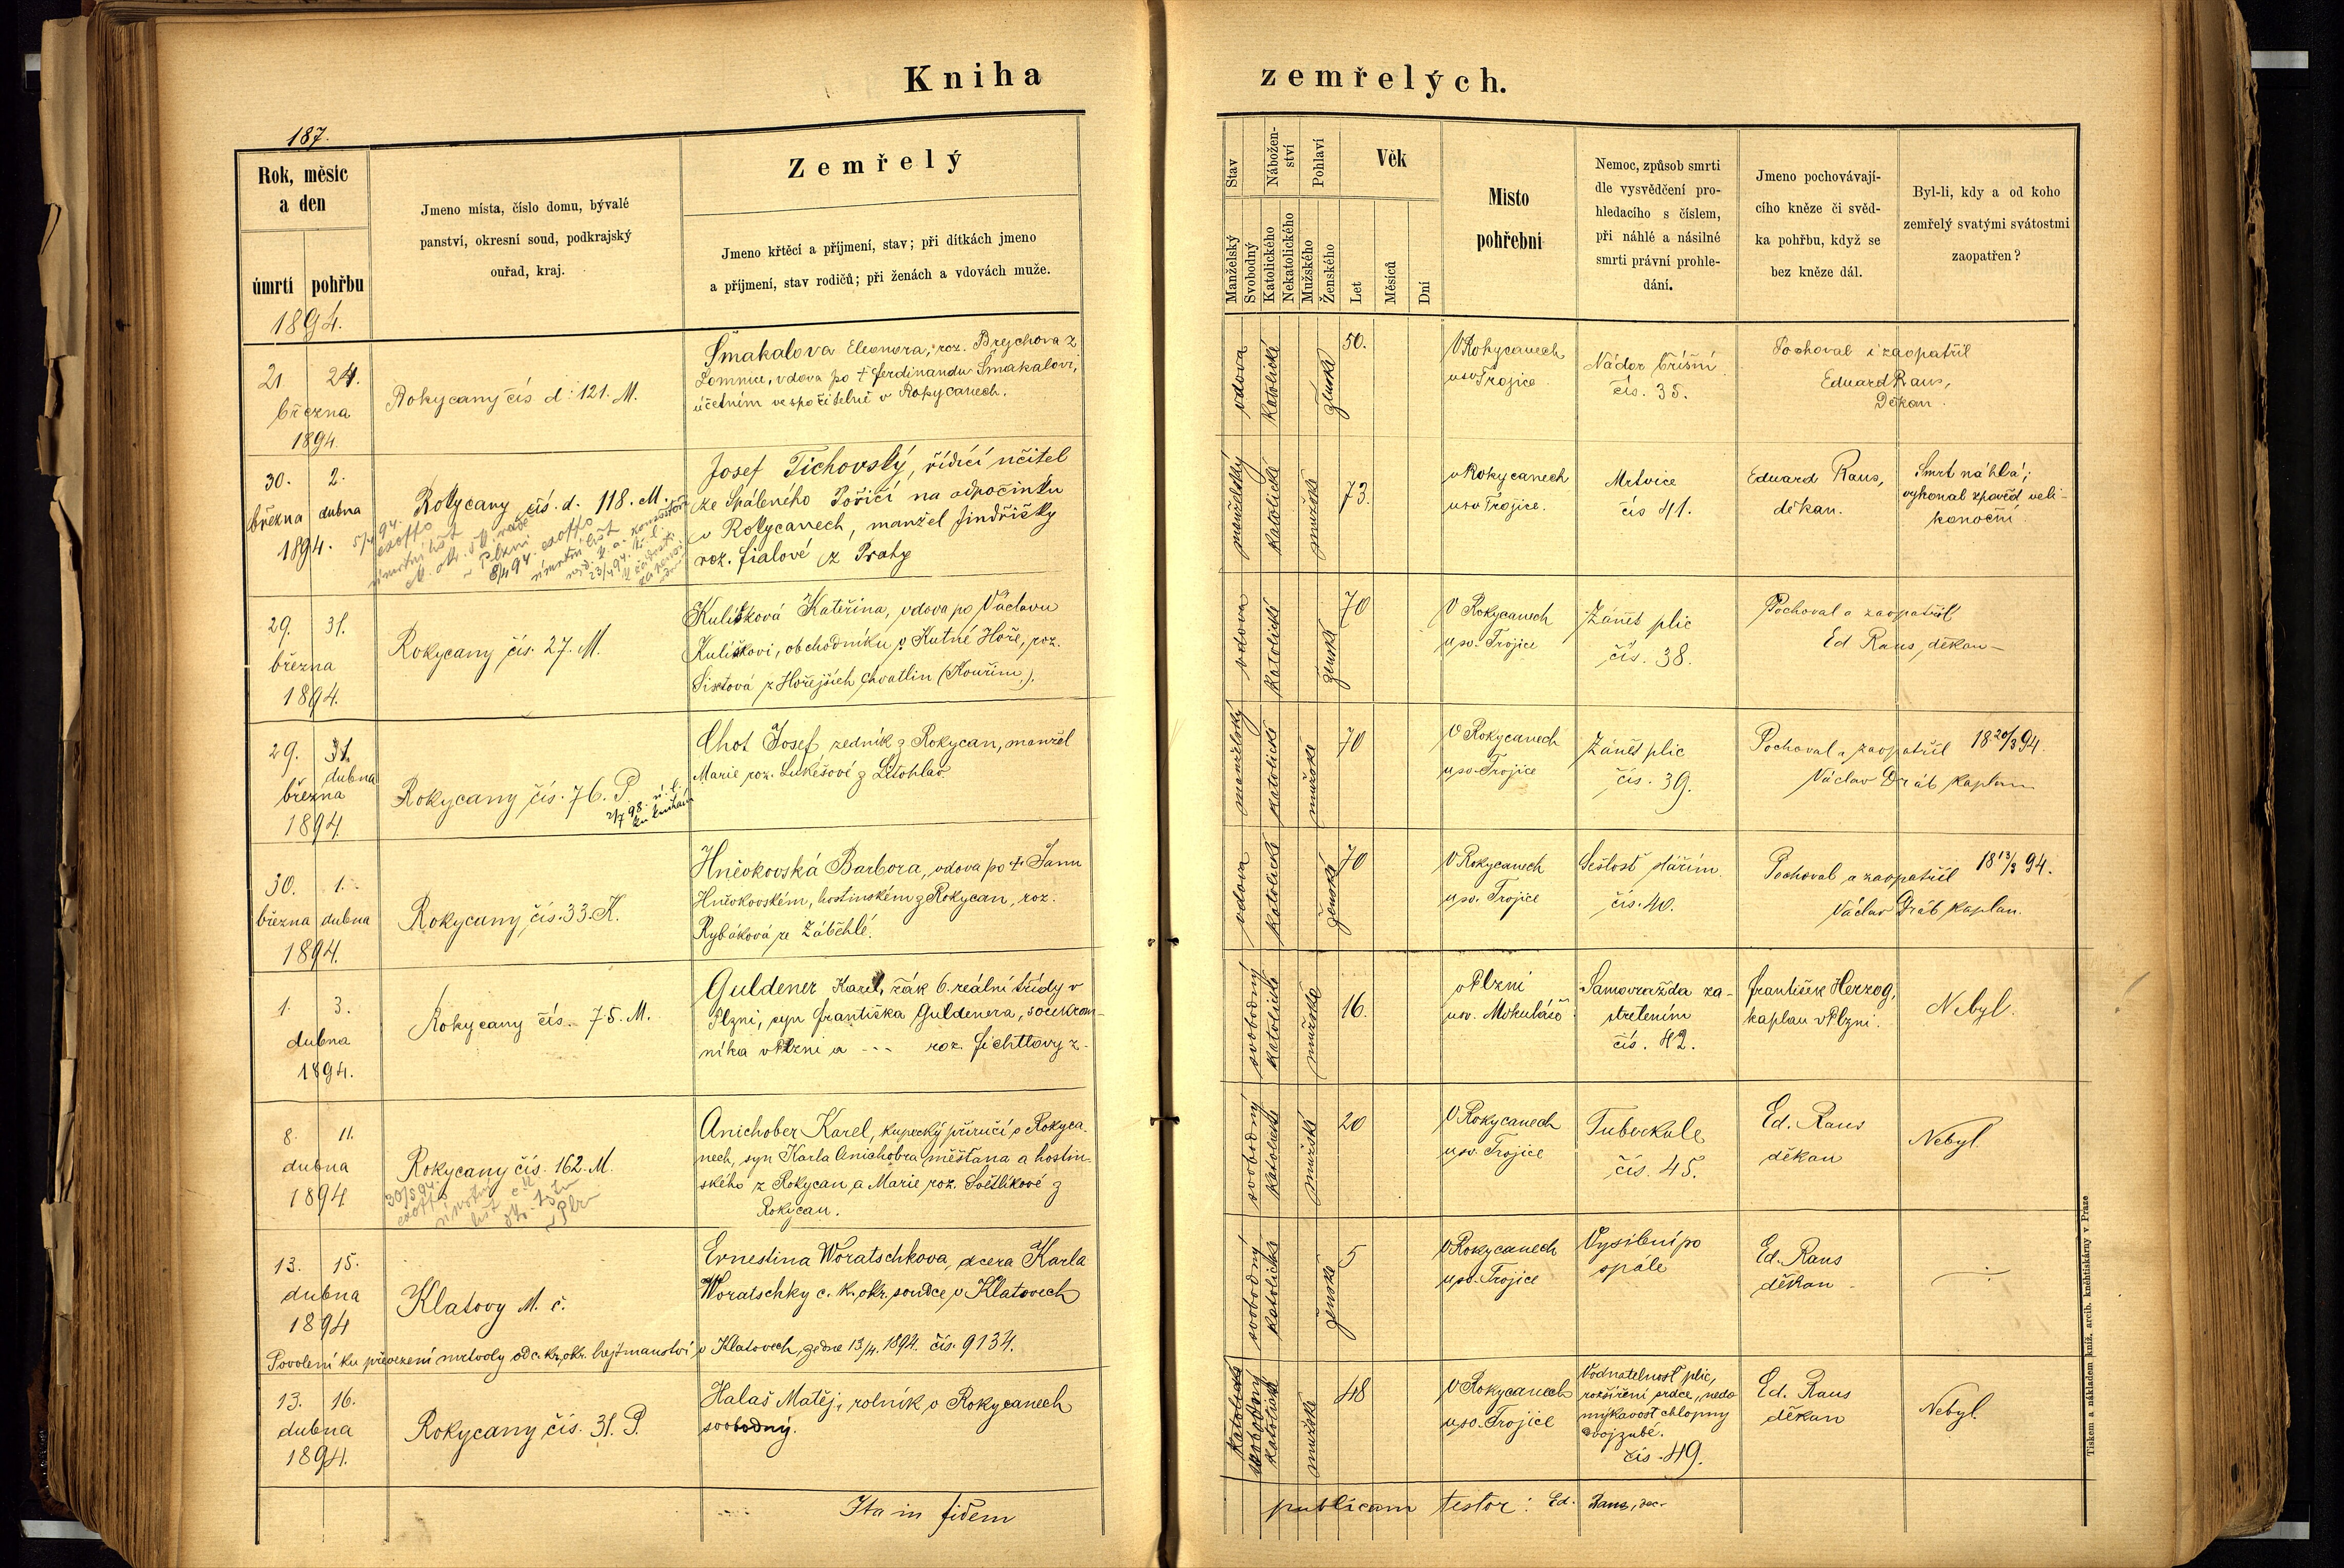 Kniha
zemřelých.
187.
Rok, měsíc
a den
úmrtí
pohřbu
1894.
Jmeno místa, číslo domu, bývalé
panství, okresní soud, podkrajský
ouřad, kraj.
Zemřelý
Jmeno křtěcí a příjmení, stav; při dítkách jmeno
a příjmení, stav rodičů; při ženách a vdovách muže.
Stav
Nábožen-
ství
Pohlaví
Věk
Manželský
Svobodný
Katolického
Nekatolického
Mužského
Ženského
Let
Měsíců
Dní
Místo
pohřební
Nemoc, způsob smrti
dle vysvědčení pro-
hledacího s číslem,
při náhlé a násilné
smrti právní prohle-
dání.
Jmeno pochovávají-
cího kněze či svěd-
ka pohřbu, když se
bez kněze dál.
Byl-li, kdy a od koho
zemřelý svatými svátostmi
zaopatřen?
21. 24.
března
1894.
Rokycany čís d: 121. M.
Šmakalova Eleonora, roz. Brejchova z
Lomnice, vdova po † Ferdinandu Šmakalovi,
účetním ve spořitelně v Rokycanech.
vdova
katolické
ženské
50.
V Rokycanech
u sv Trojice
Nádor břišní
čís. 35.
Pochoval i zaopatřil
Eduard Raus,
Děkan.
30. 2.
března dubna
1894.
Rokycany čís. d. 118. M.
5/4 94.
exoffo
úmrtní list
v Plzni
8/4 94. exoffo
úmrtní list
23/4 94.
Josef Tichovský, řídící učitel
ze Spáleného Poříčí na odpočinku
v Rokycanech, manžel Jindřišky
roz. Fialové z Prahy
manželský
katolické
mužské
73.
v Rokycanech
u sv Trojice.
Mrtvice
čís 41.
Eduard Raus,
děkan.
Smrt náhlá;
vykonal zpověď veli-
konoční.
29. 31.
března
1894.
Rokycany čís. 27. M.
Kulíšková Kateřina, vdova po Václavu
Kulíškovi, obchodníku v Kutné Hoře, roz.
Sixtová z Hořejších Chvatlin (Kouřim.).
vdova
katolické
ženské
70
V Rokycanech
u sv. Trojice
Zánět plic
čís. 38.
Pochoval a zaopatřil
Ed Raus, děkan
29. 31.
dubna
března
1894.
Rokycany čís. 76. P.
2/7 98. ú. l.
Chot Josef, zedník z Rokycan, manžel
Marie roz. Lukešové z Litohlav
manželský
katolické
mužské
70
V Rokycanech
u sv. Trojice
Zánět plic
čís. 39.
Pochoval a zaopatřil 18 20/3 94.
Václav Dráb kaplan
30. 1.
března dubna
1894.
Rokycany čís. 33. K.
Hněvkovská Barbora, vdova po † Janu
Hněvkovském, hostinském z Rokycan, roz.
Rybáková ze Záběhlé.
vdova
katolické
ženské
70
V Rokycanech
u sv. Trojice
Sešlost stářím.
čís. 40.
Pochoval a zaopatřil 18 13/3 94.
Václav Dráb kaplan.
1. 3.
dubna
1894.
Rokycany čís. 75. M.
Guldener Karel, žák 6. reální třídy v
Plzni, syn Františka Guldenera, soukrom-
níka v Plzni a --- roz. Fichttovy z -
svobodný
katolické
mužské
16.
v Plzni
u sv. Mikuláše
Samovražda za-
střelením
čís. 42.
František Herzog,
kaplan v Plzni.
Nebyl.
8. 11.
dubna
1894
Rokycany čís. 162. M.
30/5 94.
exoffo
úmrtní
list
Anichober Karel, kupecký příručí v Rokyca-
nech, syn Karla Anichobra měšťana a hostin-
ského z Rokycan a Marie roz. Světlíkové z
Rokycan.
svobodný
katolické
mužské
20
V Rokycanech
u sv. Trojice
Tuberkule
čís. 45.
Ed. Raus
děkan
Nebyl
13. 15.
dubna
1894
Klatovy M. č.
Ernestina Woratschkova, dcera Karla
Woratschky c. k. okr. soudce v Klatovech
Povolení ku převezení mrtvoly od c. k. okr. hejtmanství v Klatovech, ze dne 13/4. 1894. čís. 9134.
svobodný
katolické
ženské
5
V Rokycanech
u sv. Trojice
Vysílení po
spále
Ed. Raus
děkan
13. 16.
dubna
1894.
Rokycany čís. 31. P.
Halaš Matěj, rolník v Rokycanech
svobodný.
katolické
svobodný
katolické
mužské
48
V Rokycanech
u sv. Trojice
Vodnatelnost plic,
rozšíření srdce, nedo
mykavost chlopny
dvojzubé.
čís. 49.
Ed. Raus
děkan
Nebyl.
Ita in fidem
publicam testor: Ed. Raus, dec.
Tiskem a nákladem kníž. arcib. knihtiskárny v Praze